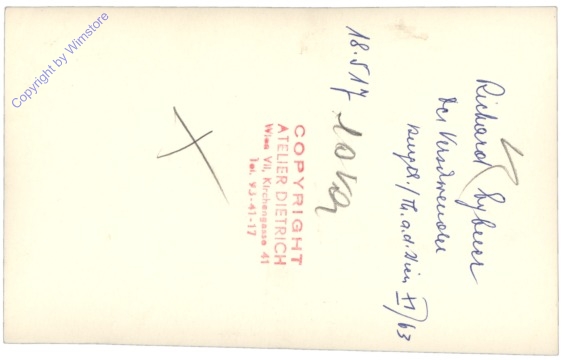 Richard Eybner
Der Verschwender
Burgth. / Th. a. d. Wien XI/63
18.517
COPYRIGHT
ATELIER DIETRICH
Wien VII, Kirchengasse 41
Tel. 93-41-17
Copyright by Wimstore